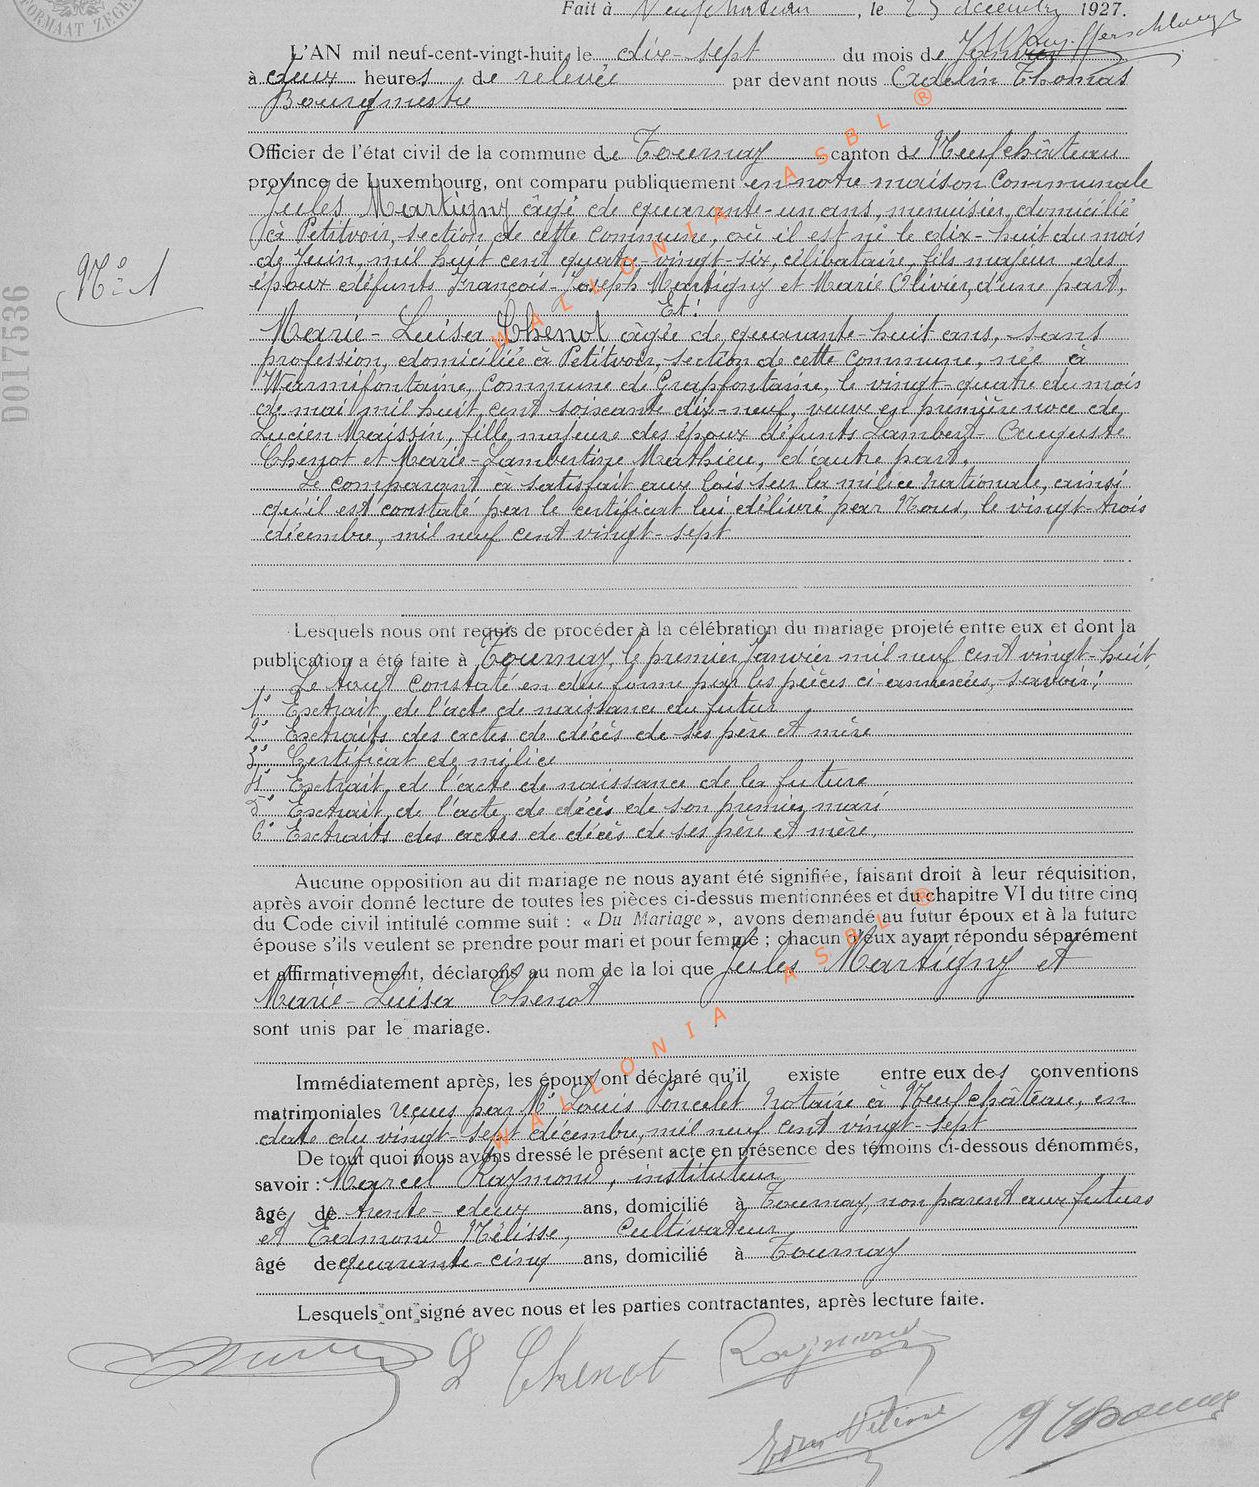 FORMAAT ZEGEL
Fait à Neufchateau, le 23 décembre 1927.
L'AN mil neuf-cent-vingt-huit, le dix-sept du mois de Janvier
à deux heures de relevée par devant nous Adelin Thomas
Bourgmestre
Officier de l'état civil de la commune de Tournay canton de Neufchâteau
province de Luxembourg, ont comparu publiquement en notre maison Communale
Jules Martigny âgé de quarante-un ans, menuisier, domicilié
à Petitvoir, section de cette Commune, où il est né le dix-huit du mois
de Juin, mil huit cent quatre-vingt-six, célibataire, fils majeur des
époux défunts François-Joseph Martigny et Marie Olivier, d'une part,
Et:
N° 1
D017536
Marie-Luisa Chenot âgée de quarante-huit ans, sans
profession, domiciliée à Petitvoir, section de cette commune, née à
Warmifontaine, Commune de Grapfontaine, le vingt-quatre du mois
de mai mil huit cent soixante dix-neuf, veuve en première noce de
Lucien Maissin, fille majeure des époux défunts Lambert-Auguste
Chenot et Marie-Lambertine Mathieu, d'autre part.
Le comparant à satisfait aux lois sur la milice nationale, ainsi
qu'il est constaté par le certificat lui délivré par Nous, le vingt-trois
décembre, mil neuf cent vingt-sept
Lesquels nous ont requis de procéder à la célébration du mariage projeté entre eux et dont la
publication a été faite à Tournay, le premier Janvier mil neuf cent vingt-huit,
Le tout constaté en due forme par les pièces ci-annexées, savoir:
1° Extrait de l'acte de naissance du futur
2° Extraits des actes de décès de ses père et mère
3° Certificat de milice
4° Extrait de l'acte de naissance de la future
5° Extrait de l'acte de décès de son premier mari
6° Extraits des actes de décès de ses père et mère.
Aucune opposition au dit mariage ne nous ayant été signifiée, faisant droit à leur réquisition,
après avoir donné lecture de toutes les pièces ci-dessus mentionnées et du chapitre VI du titre cinq
du Code civil intitulé comme suit : « Du Mariage », avons demandé au futur époux et à la future
épouse s'ils veulent se prendre pour mari et pour femme ; chacun d'eux ayant répondu séparément
et affirmativement, déclarons au nom de la loi que Jules Martigny et
Marie-Luisa Chenot
sont unis par le mariage.
Immédiatement après, les époux ont déclaré qu'il existe entre eux des conventions
matrimoniales reçues par Me Louis Poncelet Notaire à Neufchâteau, en
date du vingt-sept décembre, mil neuf cent vingt-sept
De tout quoi nous avons dressé le présent acte en présence des témoins ci-dessous dénommés,
savoir : Marcel Raymond, instituteur
âgé de trente-deux ans, domicilié à Tournay, non parent aux futurs
et Edmond Nélisse, Cultivateur
âgé de quarante-cinq ans, domicilié à Tournay
Lesquels ont signé avec nous et les parties contractantes, après lecture faite.
L Chenot Raymond
AThomas
WALLONIA ASBL ®
WALLONIA ASBL ®